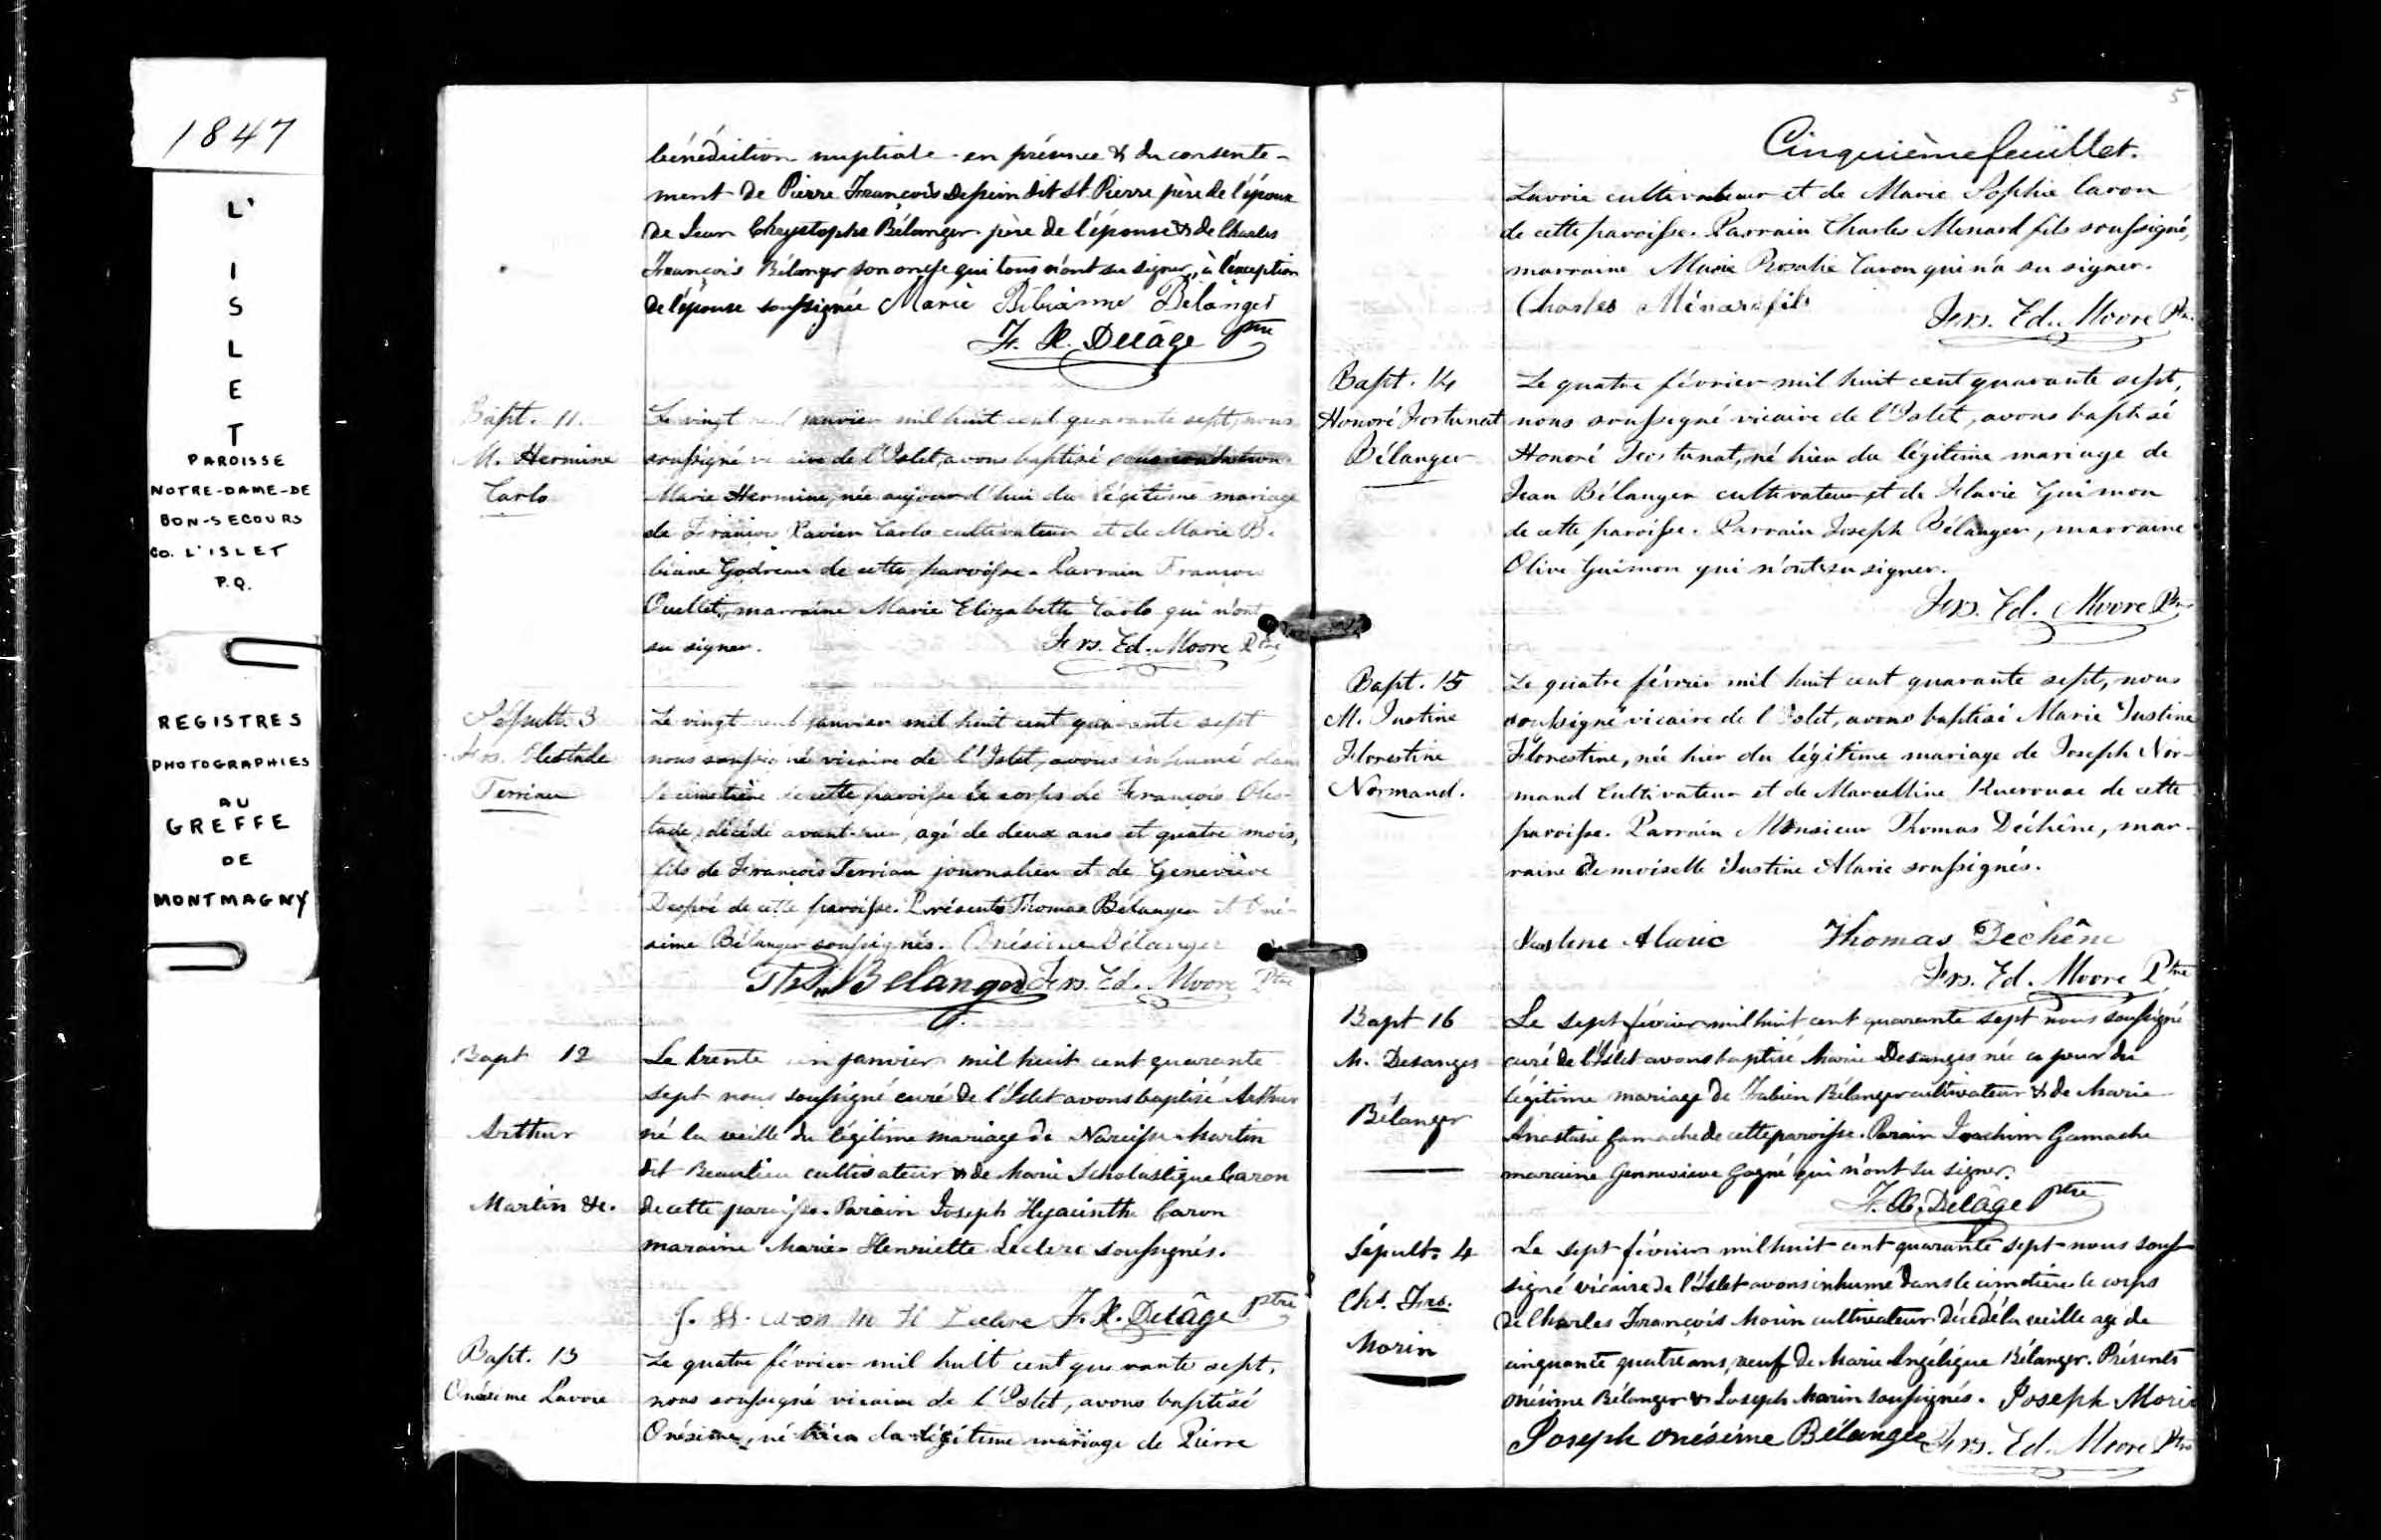 1847
L'
I
S
L
E
T
PAROISSE
NOTRE-DAME-DE
BON-SECOURS
CO. L'ISLET
P.Q.
REGISTRES
PHOTOGRAPHIES
AU
GREFFE
DE
MONTMAGNY
bénédiction nuptiale en présence & du consente-
ment de Pierre François dit St. Pierre père de l'époux
de Jean Chrystophe Bélanger père de l'épouse & de Charles
François Bélanger son oncle qui tous n'ont su signer, à l'exception
de l'épouse soussignée Marie Bibianne Bélanger
F. X. Delâge Ptre
Bapt. 11.
M. Hermine
Carlo
Le vingt neuf janvier mil huit cent quarante sept, nous
soussigné vicaire de l'Islet, avons baptisé
Marie Hermine, née aujourd'hui du légitime mariage
de François Xavier Carlo cultivateur et de Marie Bi-
biane Godreau de cette paroisse. Parrain François
Ouellet, marraine Marie Elizabeth Carlo qui n'ont
su signer. Frs. Ed. Moore Ptre
Sépult. 3
Frs. Olestade
Terrien
Le vingt neuf janvier mil huit cent quarante sept
nous soussigné vicaire de l'Islet, avons inhumé dans
le cimetière de cette paroisse le corps de François Oles-
tade, décédé avant hier, agé de deux ans et quatre mois,
fils de François Terrien journalier et de Geneviève
Després de cette paroisse. Présents Thomas Bélanger et Oné-
sime Bélanger soussignés. Onésime Bélanger
Ths. Bélanger Frs. Ed. Moore Ptre
Bapt 12
Arthur
Martin &c.
Le trente un janvier mil huit cent quarante
sept nous soussigné curé de l'Islet avons baptisé Arthur
né la veille du légitime mariage de Narcisse Martin
dit Beaulieu cultivateur & de Marie Scholastique Caron
de cette paroisse. Parain Joseph Hyacinthe Caron
maraine Marie Henriette Leclerc soussignés.
J. H. Caron M H Leclerc F. X. Delâge Ptre
Bapt. 13
Onésime Lavoie
Le quatre février mil huit cent quarante sept,
nous soussigné vicaire de l'Islet, avons baptisé
Onésime, né hier du légitime mariage de Pierre
5
Cinquième feuillet.
Lavoie cultivateur et de Marie Sophie Caron
de cette paroisse. Parrain Charles Menard fils soussigné,
marraine Marie Rosalie Caron qui n'a su signer.
Charles Ménard fils Frs. Ed. Moore Ptre
Bapt. 14
Honoré Fortunat
Bélanger
Le quatre février mil huit cent quarante sept,
nous soussigné vicaire de l'Islet, avons baptisé
Honoré Fortunat, né hier du légitime mariage de
Jean Bélanger cultivateur et de Flavie Guimon
de cette paroisse. Parrain Joseph Bélanger, marraine
Olive Guimon qui n'ont su signer.
Frs. Ed. Moore Ptre
Bapt. 15
M. Justine
Florestine
Normand.
Le quatre février mil huit cent quarante sept, nous
soussigné vicaire de l'Islet, avons baptisé Marie Justine
Florestine, née hier du légitime mariage de Joseph Nor-
mand Cultivateur et de Marcelline Kuerouac de cette
paroisse. Parrain Monsieur Thomas Déchêne, mar-
raine Demoiselle Justine Alarie soussignés.
Justine Alarie Thomas Dechêne
Frs. Ed. Moore Ptre
Bapt 16
M. Desanges
Bélanger
Le sept février mil huit cent quarante sept nous soussigné
curé de l'Islet avons baptisé Marie Desanges née ce jour du
légitime mariage de Fabien Bélanger cultivateur & de Marie
Anastasie Gamache de cette paroisse. Parain Joachim Gamache
maraine Genneviève Gagné qui n'ont su signer.
F. X. Delâge Ptre
Sépult. 4
Chs. Frs.
Morin
Le sept février mil huit cent quarante sept nous sous-
signé vicaire de l'Islet avons inhumé dans le cimetière le corps
de Charles François Morin cultivateur décédé la veille agé de
cinquante quatre ans, veuf de Marie Angélique Bélanger. Présents
Onésime Bélanger & Joseph Morin soussignés. Joseph Morin
Joseph Onésime Bélanger Frs. Ed. Moore Ptre